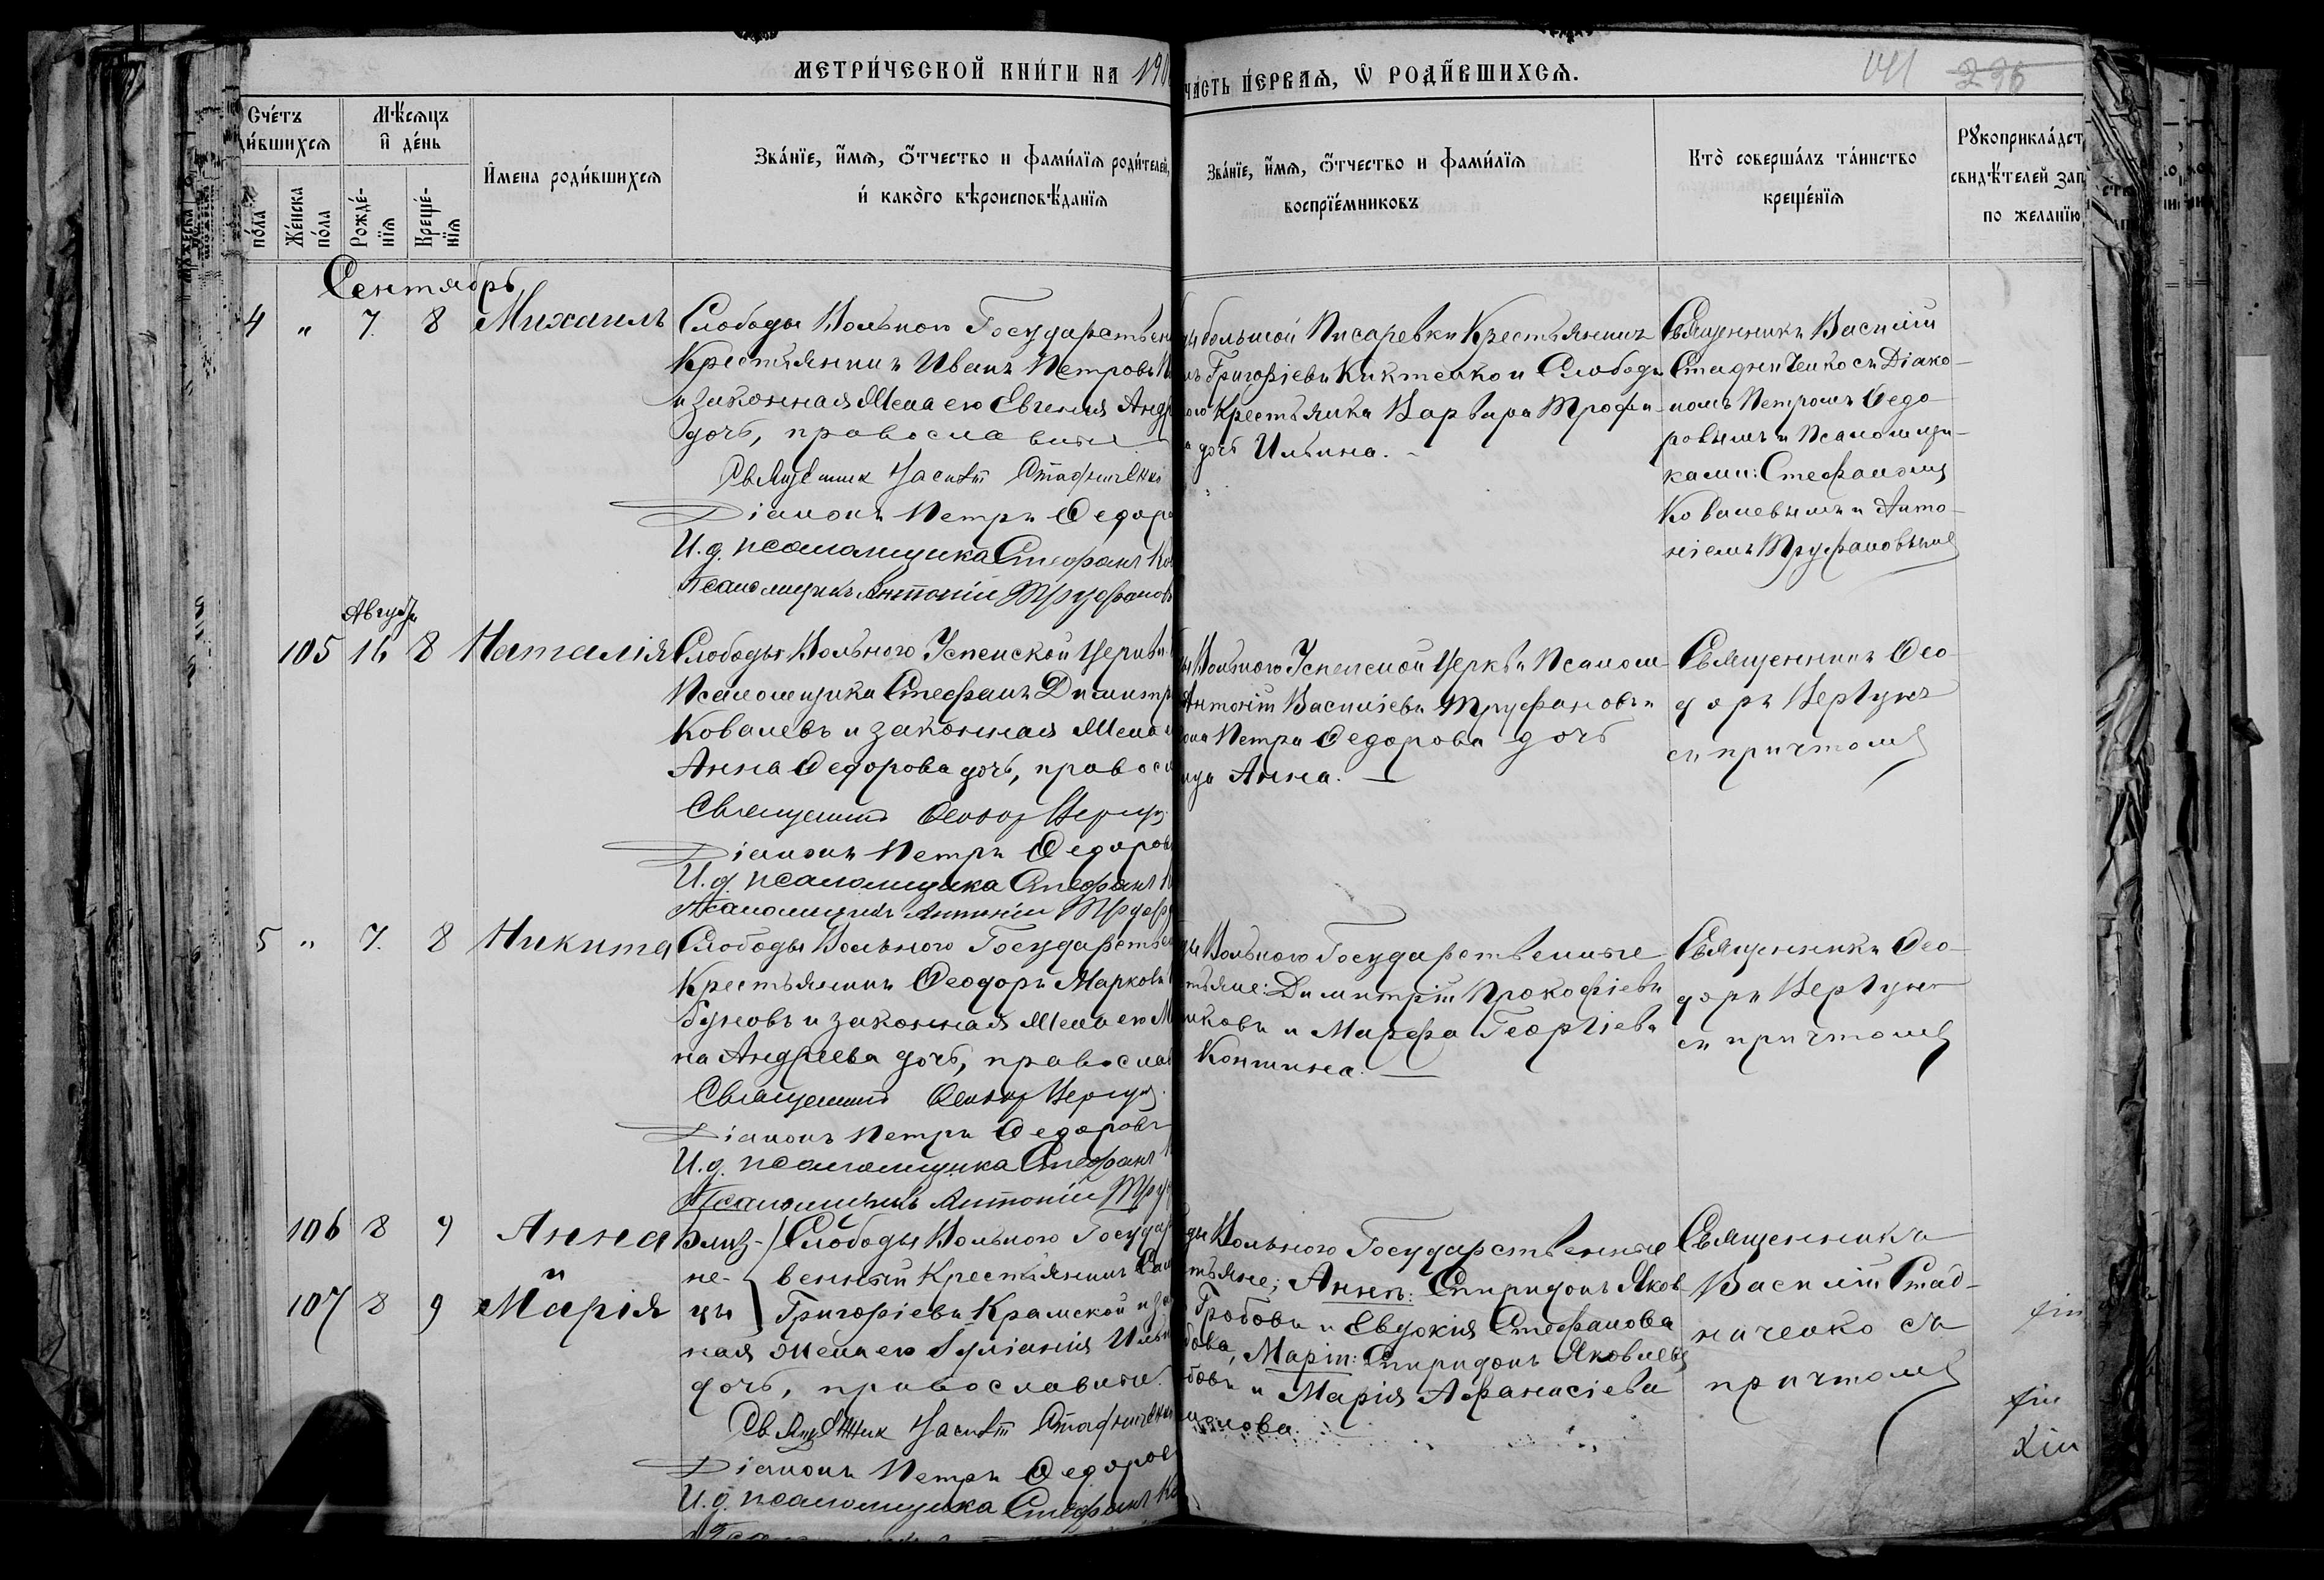 МЕТРИ́ЧЕСКОЙ КНИ́ГИ НА 190
ЧА́СТЬ ПЕ́РВАЯ, Ѡ РОДИ́ВШИХСЯ.
141 236
Сче́тъ
ди́вшихся
по́ла
Же́нска по́ла
Мѣ́сяцъ и де́нь
Рожде́нїя
Креще́нїя
И҆мена роди́вшихся
Зва́нїе, и҆́мя, ѻ҆́тчество и фами́лїя роди́телей,
и҆ како́гѡ вѣроисповѣ́данїя
Зва́нїе, и҆́мя, ѻ҆́тчество и фами́лїя
воспрїе́мниковъ
Кто̀ соверша́лъ та́инство
креще́нїя
Рꙋкоприкла́дст
свидѣ́телей зап
по жела́нїю
Сентябрь
4 " 7. 8 Михаилъ
Слободы Вольного Государствен
Крестьянинъ Иванъ Петровъ
и законная жена его Евгения Андр
дочь, православные
Священник Василий Стадниченко
Діаконъ Петръ Ѳедоро
И. д. псаломщика Стефанъ Ков
Псаломщикъ Антоній Труфановъ
ды большой Писаревки Крестьянинъ
Григоріевъ Киктенко и Слободы
ного Крестьянка Варвара Трофи-
а дочь Ильина.
Священникъ Василій
Стадниченко съ Діако-
номъ Петромъ Ѳедо-
ровымъ и Псаломщи-
ками: Стефаномъ
Ковалевымъ и Анто-
ніемъ Труфановымъ
Августъ
105 16 8 Наталія
Слободы Вольного Успенской Церкви
Псаломщикъ Стефанъ Димитр
Ковалевъ и законная жена е
Анна Ѳедорова дочь, правосл
Священникъ Ѳеодор Вергун
Діаконъ Петръ Ѳедоровъ
И. д. псаломщика Стефанъ К
Псаломщикъ Антоній Труф
ды Вольного Успенской Церкви Псалом-
Антоній Василіевъ Труфановъ и
она Петра Ѳедорова дочь
ица Анна.
Священникъ Ѳео-
доръ Вергунъ
съ причтомъ
5 " 7. 8 Никита
Слободы Вольного Государствен
Крестьянинъ Ѳеодоръ Марковъ
буновъ и законная жена его М
на Андреева дочь, правосла
Священникъ Ѳеодор Вергун.
Діаконъ Петръ Ѳедоровъ
И. д. псаломщика Стефанъ
Псаломщикъ Антоній Труф
ды Вольного Государственные
тьяне: Димитрій Прокофіевъ
никовъ и Марфа Георгіева
Коншина.
Священникъ Ѳео-
доръ Вергунъ
съ причтомъ
106 8 9 Анна
107 8 9 Марія
близ-
не-
цы
Слободы Вольного Государ
венный Крестьянинъ
Григоріевъ Крамской и за
ная жена его Іуліанія Ильи
дочь, православные.
Священник Василий Стадниченко
Діаконъ Петръ Ѳедоров
И. д. псаломщика Стефанъ Ко
ды Вольного Государственные
тьяне; Анны: Спиридонъ Яков
Гробовъ и Евдокія Стефанова
бова, Маріи: Спиридонъ Яковлевъ
обовъ и Марія Афанасіева
Священникъ
Василій Стад-
ниченко съ
причтомъ